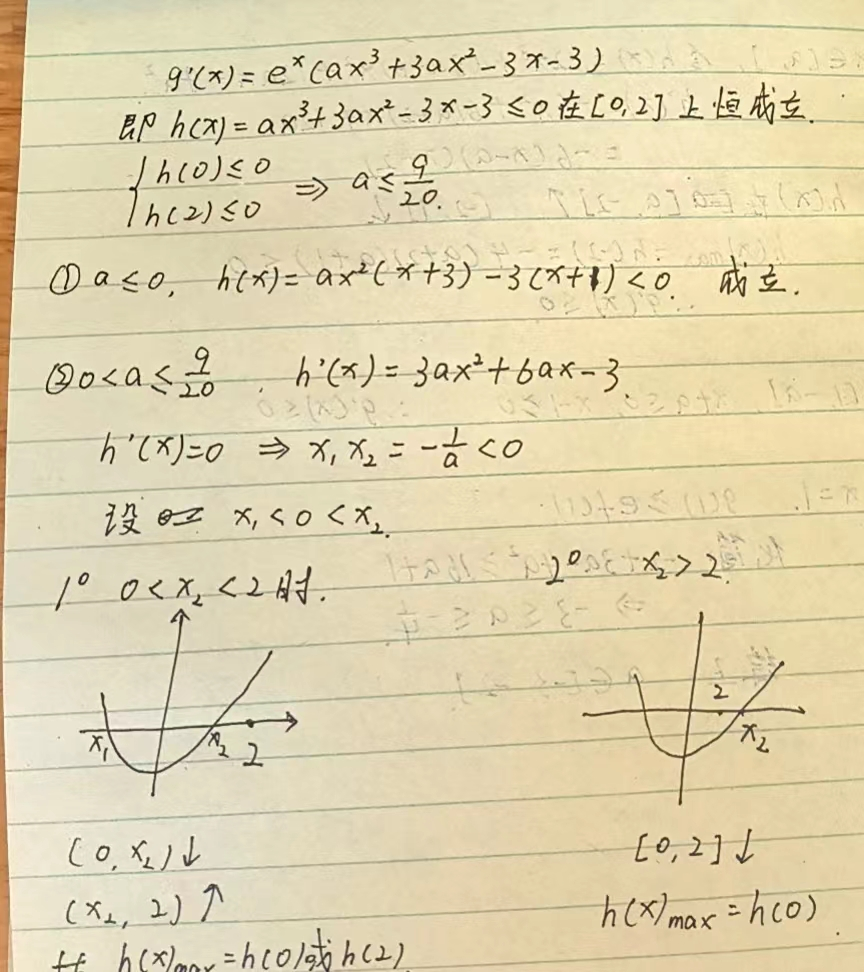 g'(x) = e^x (ax³ + 3ax² - 3x - 3)
即 h(x) = ax³ + 3ax² - 3x - 3 ≤ 0 在 [0, 2] 上恒成立.
{ h(0) ≤ 0
h(2) ≤ 0 ⇒ a ≤ 9/20.
① a ≤ 0, h(x) = ax²(x+3) - 3(x+1) < 0 成立.
② 0 < a ≤ 9/20. h'(x) = 3ax² + 6ax - 3
h'(x) = 0 ⇒ x₁ x₂ = -1/a < 0
设 x₁ < 0 < x₂.
1° 0 < x₂ < 2 时. 2° x₂ > 2.
x₁ x₂ 2
2 x₂
(0, x₂) ↓ [0, 2] ↓
(x₂, 2) ↑ h(x)max = h(0)
h(x)max = h(0) 或 h(2)